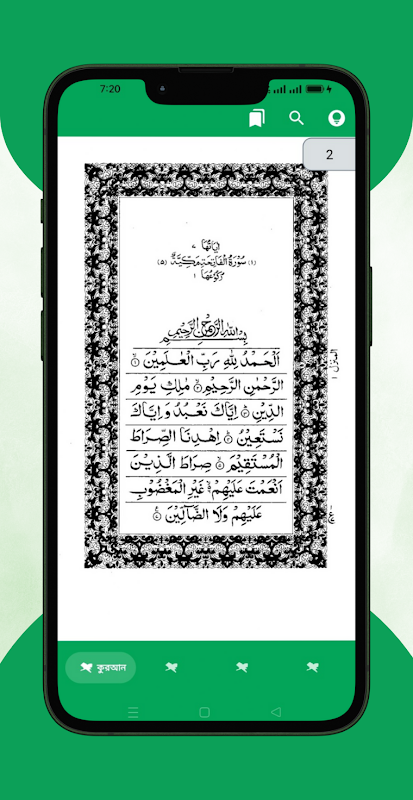 7:20
2
اٰيَاتُهَا ٧
(١) سُوْرَةُ الْفَاتِحَةِ مَكِّيَّةٌ (٥)
رُكُوْعُهَا ١
بِسْمِ اللهِ الرَّحْمٰنِ الرَّحِيْمِ
اَلْحَمْدُ لِلّٰهِ رَبِّ الْعٰلَمِيْنَ ۙ﴿١﴾
الرَّحْمٰنِ الرَّحِيْمِ ۙ﴿٢﴾ مٰلِكِ يَوْمِ
الدِّيْنِ ﴿٣﴾ اِيَّاكَ نَعْبُدُ وَ اِيَّاكَ
نَسْتَعِيْنُ ﴿٤﴾ اِهْدِنَا الصِّرَاطَ
الْمُسْتَقِيْمَ ۙ﴿٥﴾ صِرَاطَ الَّذِيْنَ
اَنْعَمْتَ عَلَيْهِمْ ۙ﴿٦﴾ غَيْرِ الْمَغْضُوْبِ
عَلَيْهِمْ وَلَا الضَّآلِّيْنَ ﴿٧﴾
المنزل ١
কুরআন